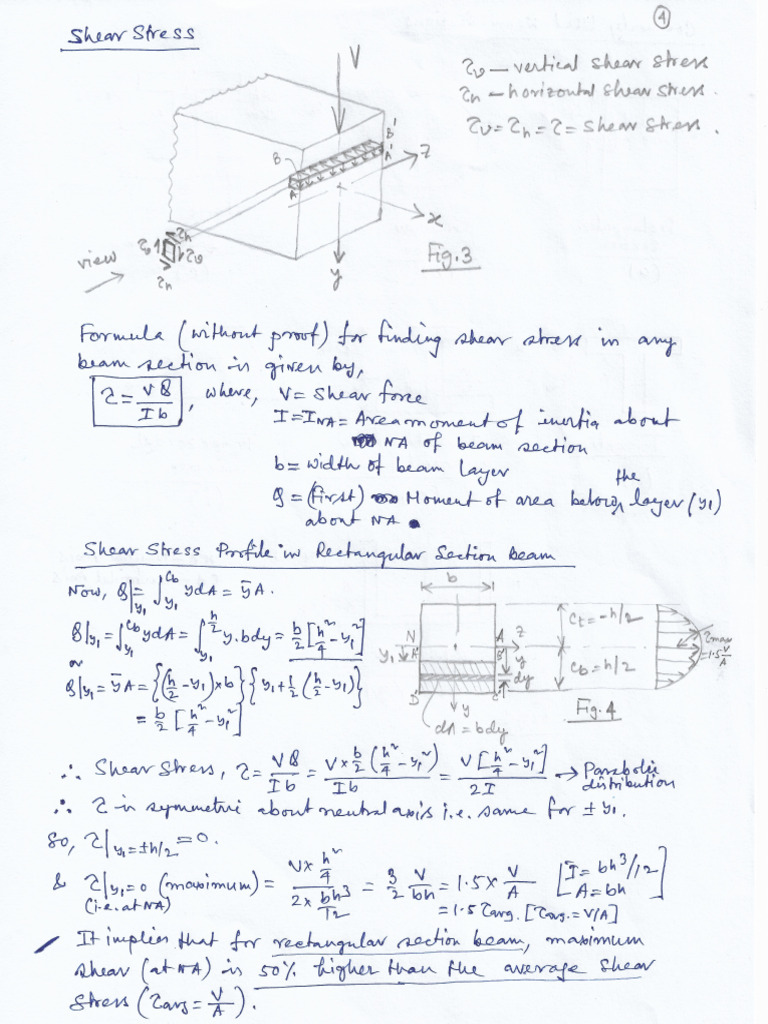 4
Shear Stress
τv – vertical shear stress
τh – horizontal shear stress.
τv = τh = τ = shear stress.
V
B'
B
A'
A
z
x
y
τh
τv
τv
τh
view
Fig.3
Formula (without proof) for finding shear stress in any
beam section is given by,
τ = VQ/Ib , where, V = Shear force
I = I_NA = Area moment of inertia about
NA of beam section
b = width of beam layer
Q = (first) Moment of area below the layer (y1)
about NA.
Shear Stress Profile in Rectangular Section beam
Now, Q|y1 = ∫_{y1}^{Cb} y dA = ȳA.
Q|y1 = ∫_{y1}^{Cb} y dA = ∫_{y1}^{h/2} y.bdy = b/2 [h²/4 – y1²]
or
Q|y1 = ȳA = {(h/2 – y1)×b}{y1 + 1/2 (h/2 – y1)}
= b/2 [h²/4 – y1²]
b
N
A
z
y1
A'
B'
y
dy
D'
C'
y
dA = bdy
Ct = –h/2
Cb = h/2
τmax
= 1.5 V/A
Fig.4
∴ Shear Stress, τ = VQ/Ib = V × b/2 (h²/4 – y1²)/Ib = V[h²/4 – y1²]/2I → Parabolic
distribution
∴ τ is symmetric about neutral axis i.e. same for ± y1.
So, τ|y1=±h/2 = 0.
& τ|y1=0 (maximum) = (V × h²/4)/(2 × bh³/12) = 3/2 V/bh = 1.5 × V/A [I = bh³/12
A = bh]
(i.e. at NA)
= 1.5 τavg. [τavg. = V/A]
It implies that for rectangular section beam, maximum
shear (at NA) is 50% higher than the average shear
stress (τavg = V/A).